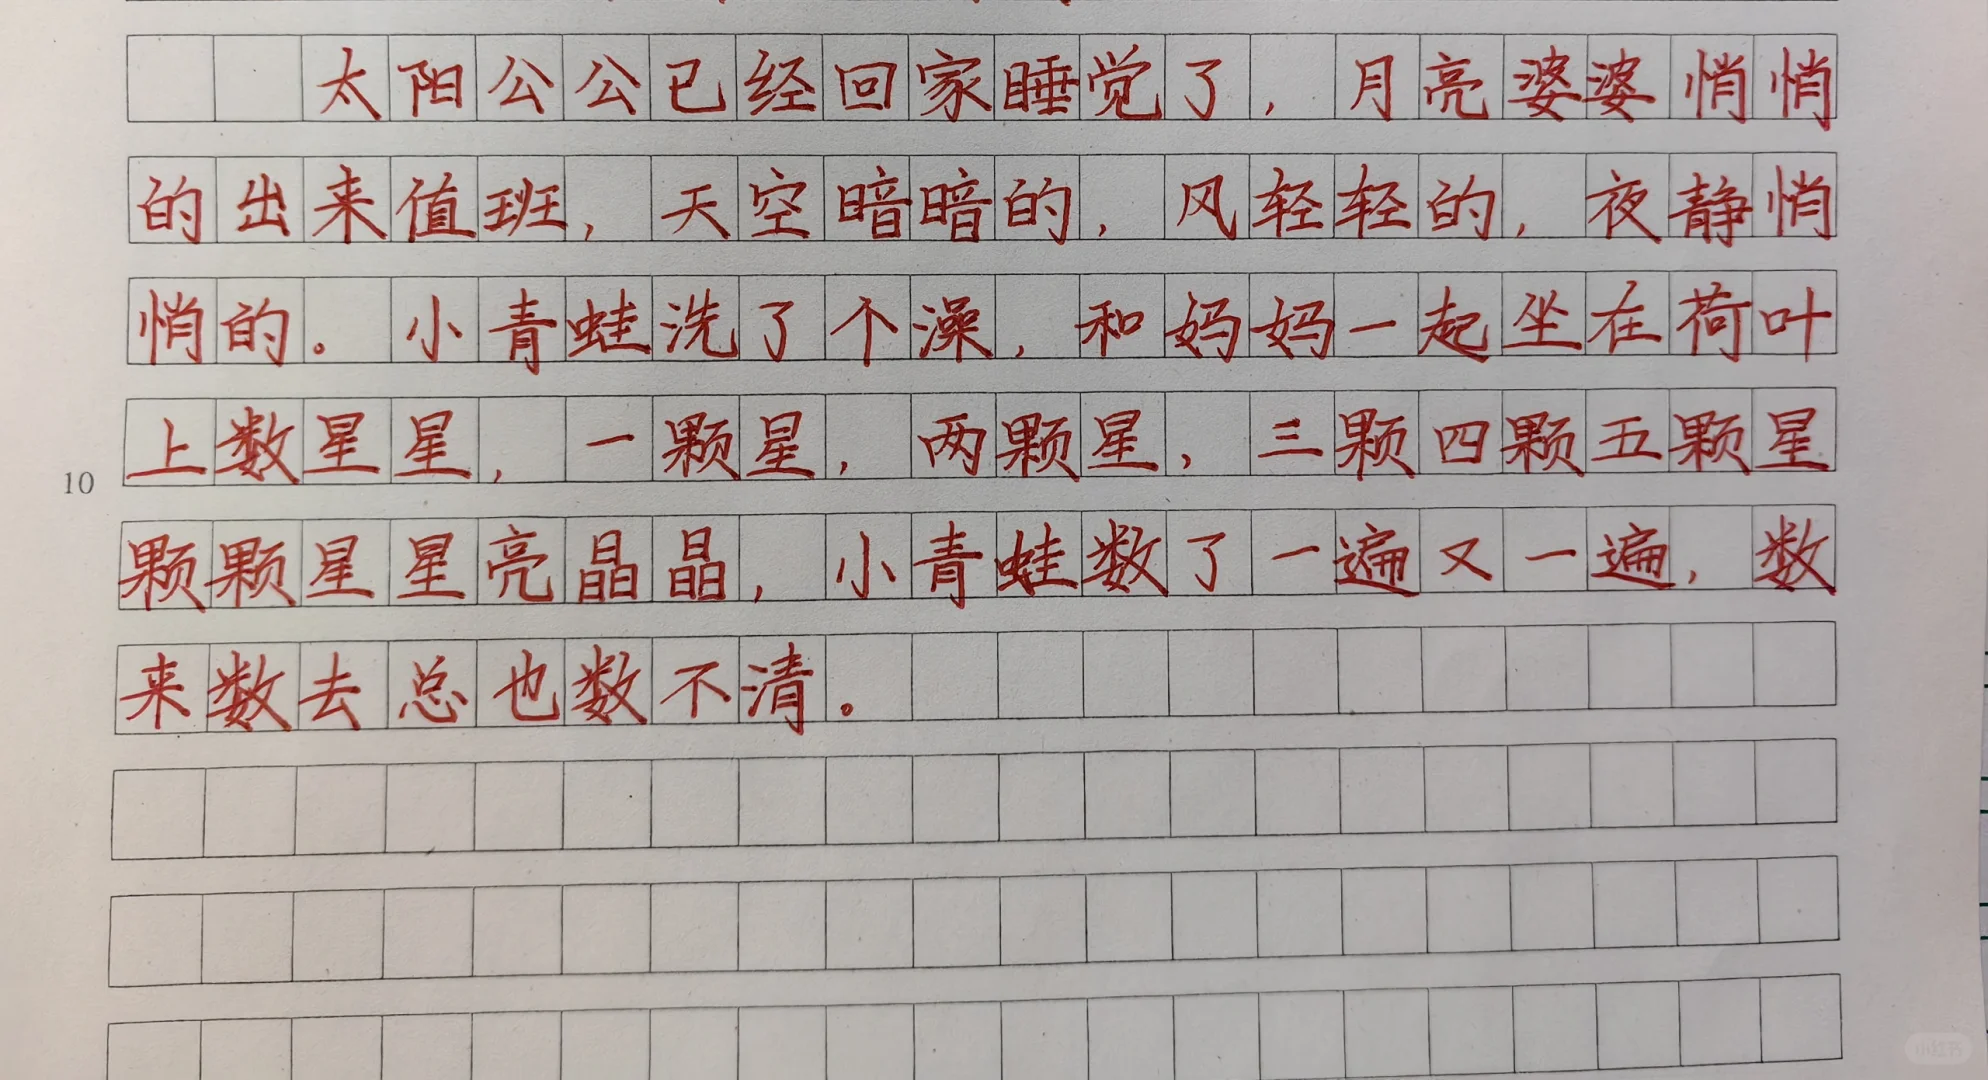 太阳公公已经回家睡觉了,月亮婆婆悄悄
的出来值班,天空暗暗的,风轻轻的,夜静悄
悄的。小青蛙洗了个澡,和妈妈一起坐在荷叶
上数星星,一颗星,两颗星,三颗四颗五颗星
10
颗颗星星亮晶晶,小青蛙数了一遍又一遍,数
来数去总也数不清。
小红书